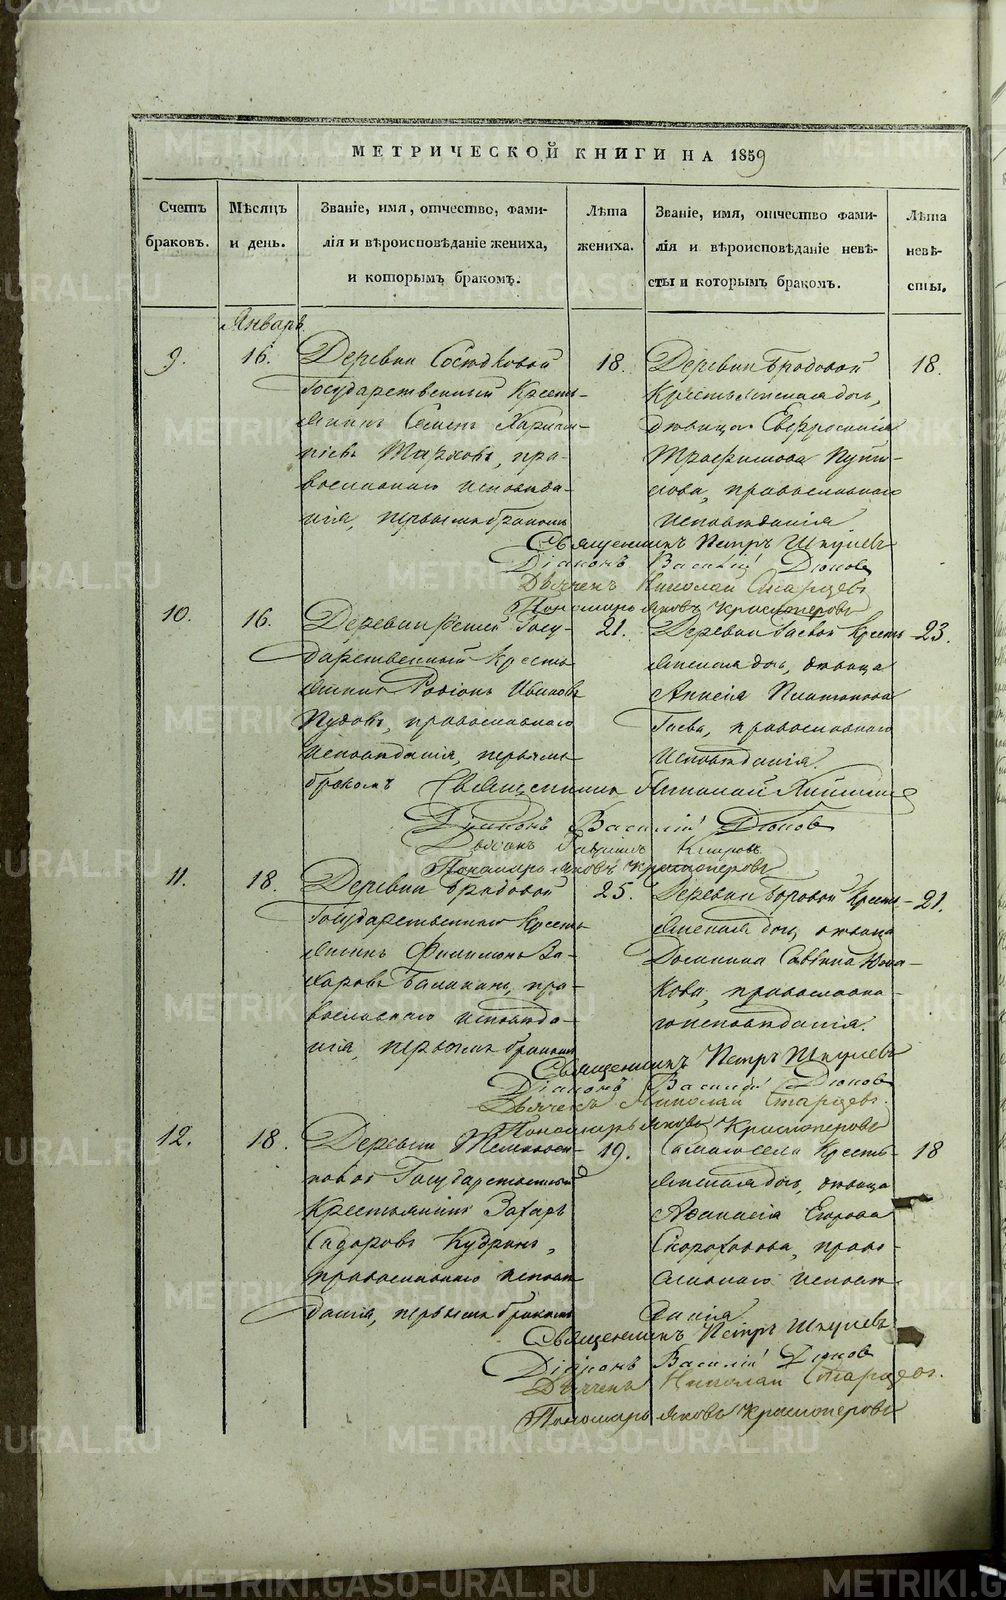 МЕТРИЧЕСКОЙ КНИГИ НА 1859
Счетъ браковъ.
Мѣсяцъ и день.
Званіе, имя, отчество, фами-
лія и вѣроисповѣданіе жениха,
и которымъ бракомъ.
Лѣта жениха.
Званіе, имя, отчество фами-
лія и вѣроисповѣданіе невѣ-
сты и которымъ бракомъ.
Лѣта невѣ-
сты.
Январь
9.
16.
Деревни
Государственный Кресть-
янинъ Семенъ
пра-
вославнаго исповѣда-
нія, первымъ бракомъ
18.
Деревни Бродовой
Крестьянская дочь,
дѣвица Евфросинія
Трофимова
православнаго
исповѣданія
18.
Священникъ Петръ Шкулевъ
Діаконъ Василій Дюковъ
Дьячекъ Николай Старцевъ
Пономарь Яковъ Красноперовъ
10.
16.
Деревни Госу-
дарственный Кресть-
янинъ Родіонъ Ивановъ
Пудовъ, православнаго
исповѣданія, первымъ
бракомъ
21.
Деревни Гаевой Кресть-
янская дочь, дѣвица
Анисія Платонова
Гаева, православнаго
исповѣданія.
23.
Священникъ
Діаконъ Василій Дюковъ
Гавріилъ
Пономарь Яковъ Красноперовъ
11.
18.
Деревни Бродовой
Государственный Кресть-
янинъ Филимонъ За-
харовъ Балакинъ, пра-
вославнаго исповѣда-
нія, первымъ бракомъ
25.
Деревни Боровой Кресть-
янская дочь, дѣвица
Домнина Саввина
кова, православна-
го исповѣданія.
21.
Священникъ Петръ Шкулевъ
Діаконъ Василій Дюковъ
Дьячекъ Николай Старцевъ.
Пономарь Яковъ Красноперовъ
12.
18.
Деревни
Государственный
Крестьянинъ Захаръ
Сидоровъ Кудринъ,
православнаго исповѣ-
данія, первымъ бракомъ
19.
Самаго села Кресть-
янская дочь, дѣвица
Афанасія Егорова
Скороходова, право-
славнаго исповѣ-
данія
18
Священникъ Петръ Шкулевъ
Діаконъ Василій Дюковъ
Дьячекъ Николай Старцевъ.
Пономарь Яковъ Красноперовъ
METRIKI.GASO-URAL.RU